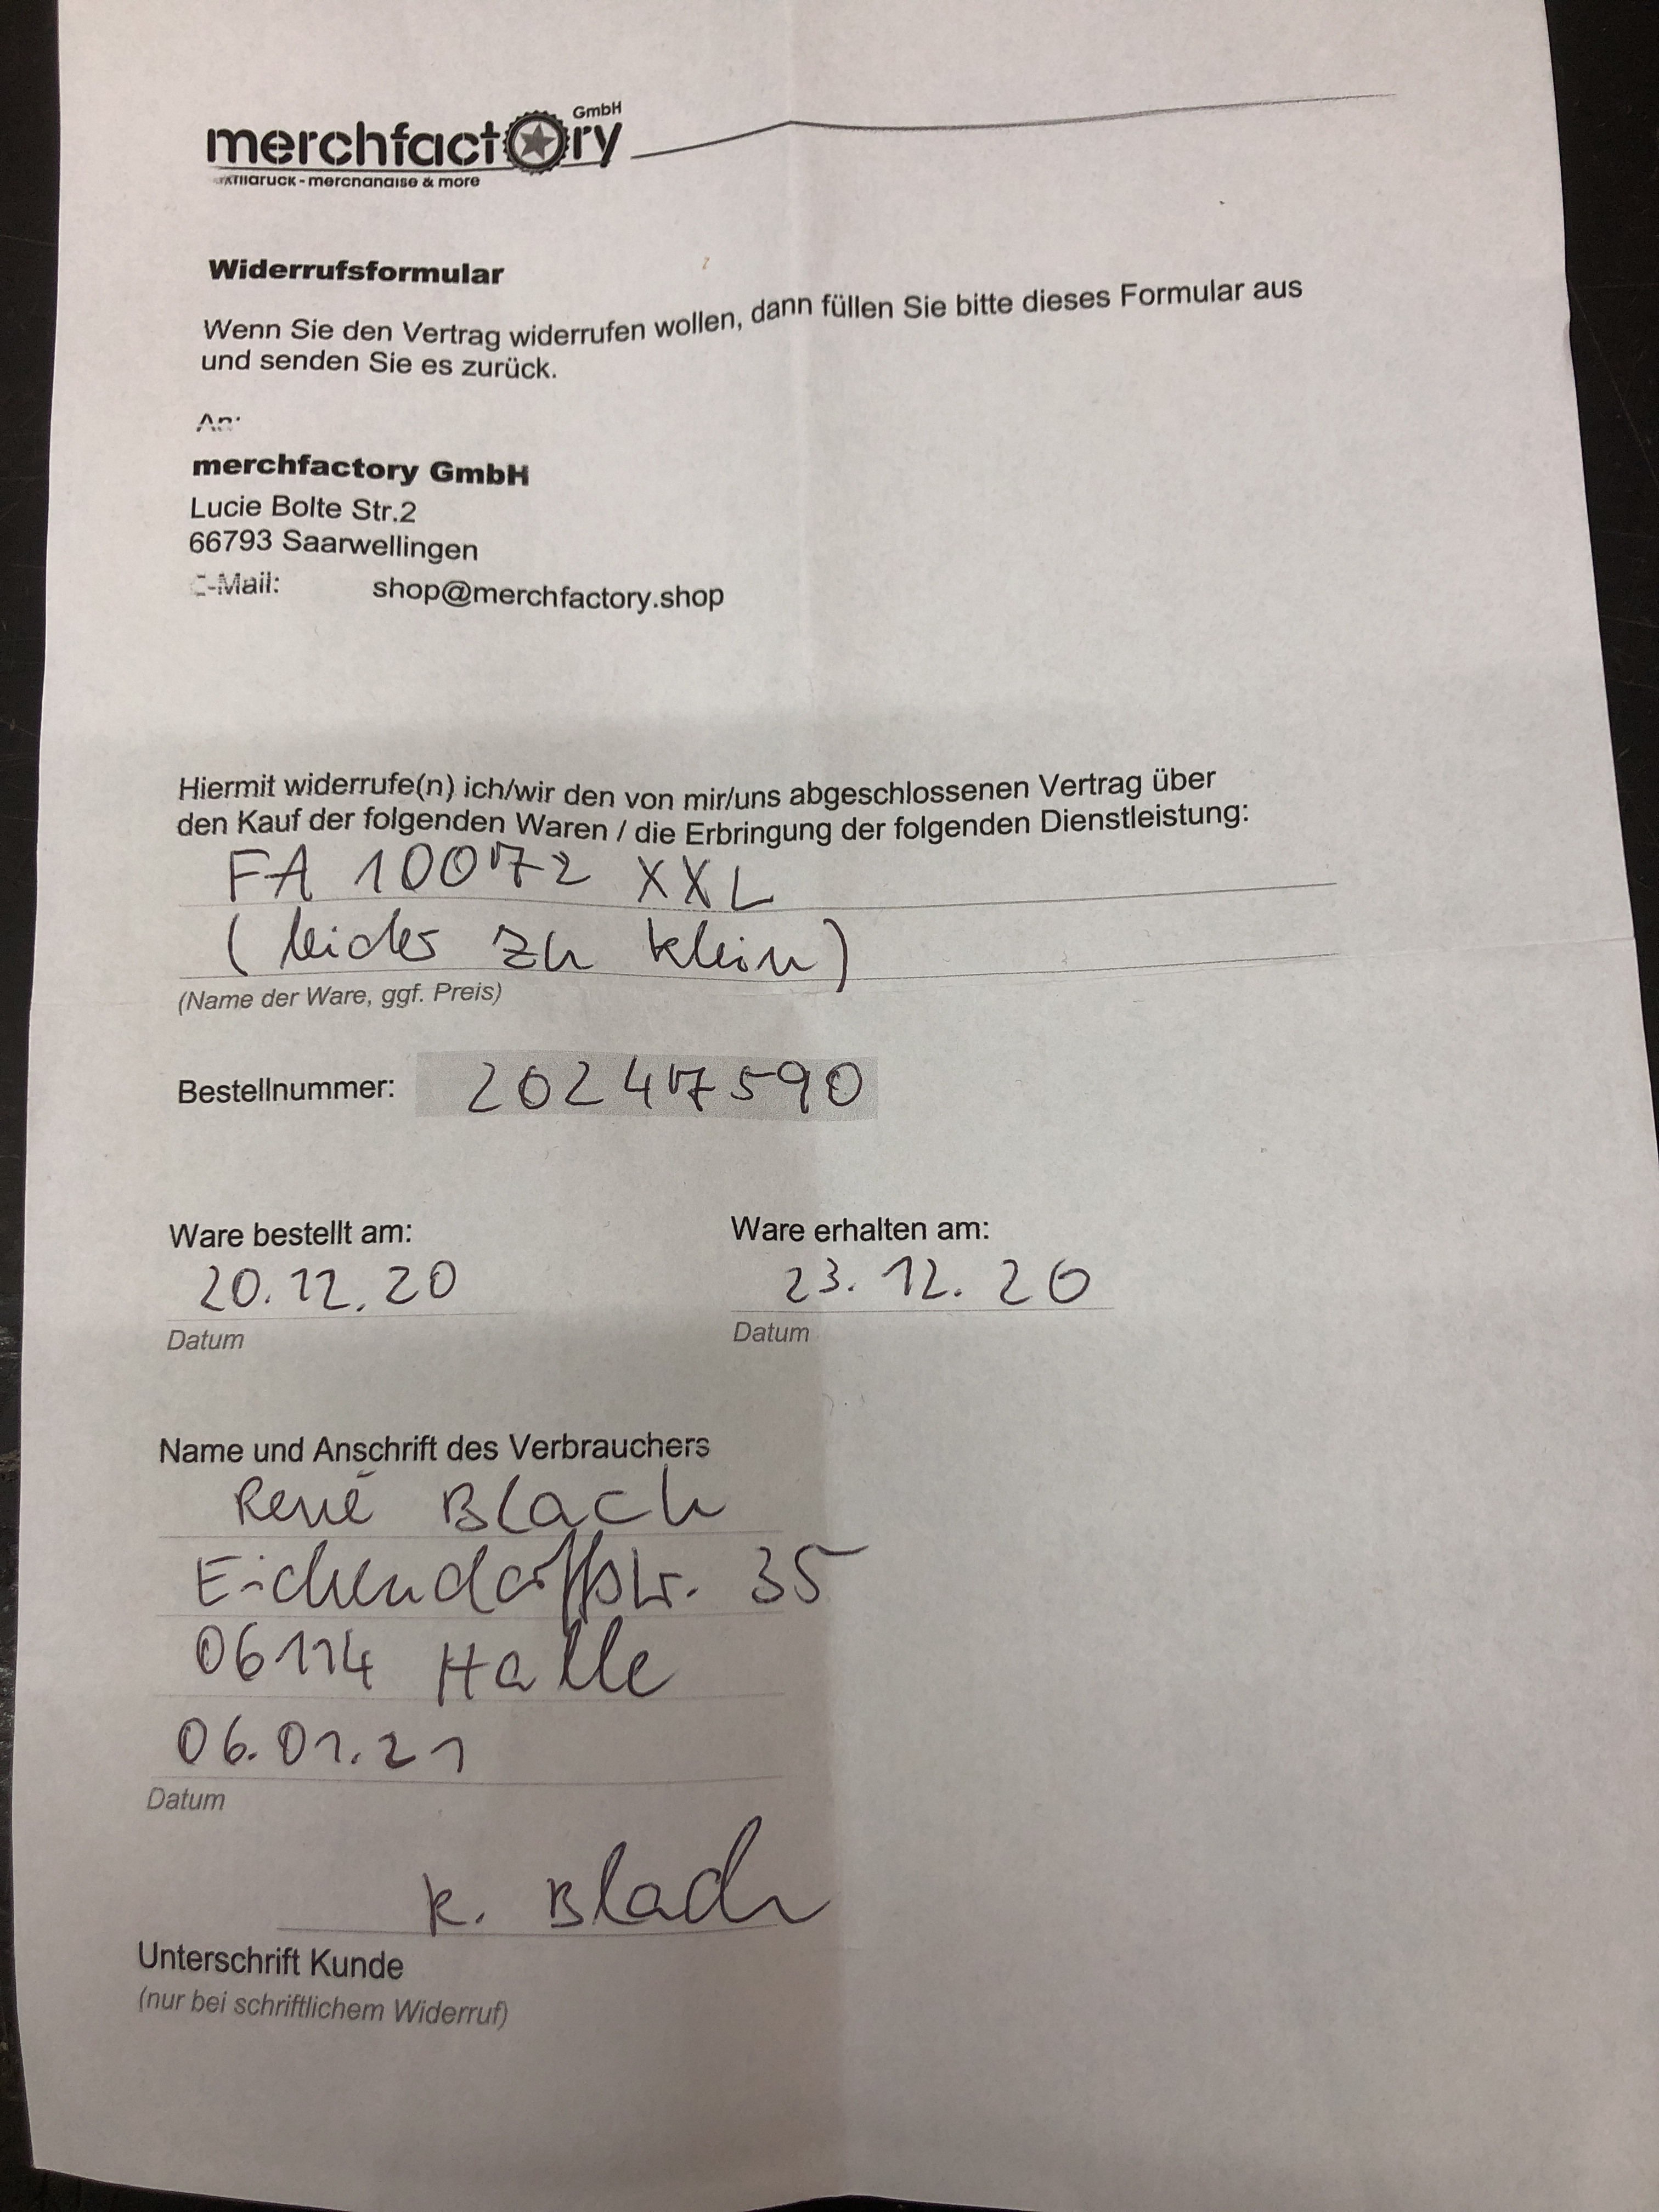 merchfactory GmbH
- merchandise & more
Widerrufsformular
Wenn Sie den Vertrag widerrufen wollen, dann füllen Sie bitte dieses Formular aus
und senden Sie es zurück.
An:
merchfactory GmbH
Lucie Bolte Str.2
66793 Saarwellingen
E-Mail: shop@merchfactory.shop
Hiermit widerrufe(n) ich/wir den von mir/uns abgeschlossenen Vertrag über
den Kauf der folgenden Waren / die Erbringung der folgenden Dienstleistung:
FA 10072 XXL
(leider zu klein)
(Name der Ware, ggf. Preis)
Bestellnummer: 202447590
Ware bestellt am: Ware erhalten am:
20.12.20 23.12.20
Datum Datum
Name und Anschrift des Verbrauchers
René Blach
Eichendorffstr. 35
06114 Halle
06.01.21
Datum
R. Blach
Unterschrift Kunde
(nur bei schriftlichem Widerruf)